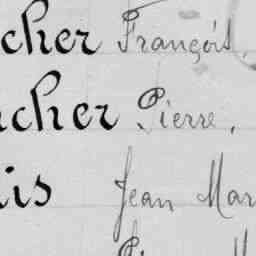 cher François,
cher Pierre,
is Jean Mar